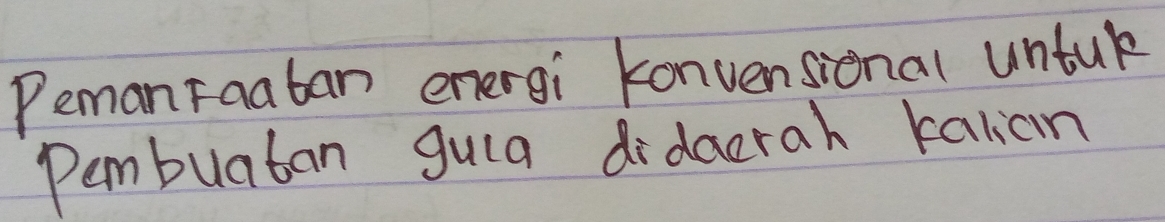 Pemanfaatan energi konvensional untuk
pembuatan gula didaerah kalian